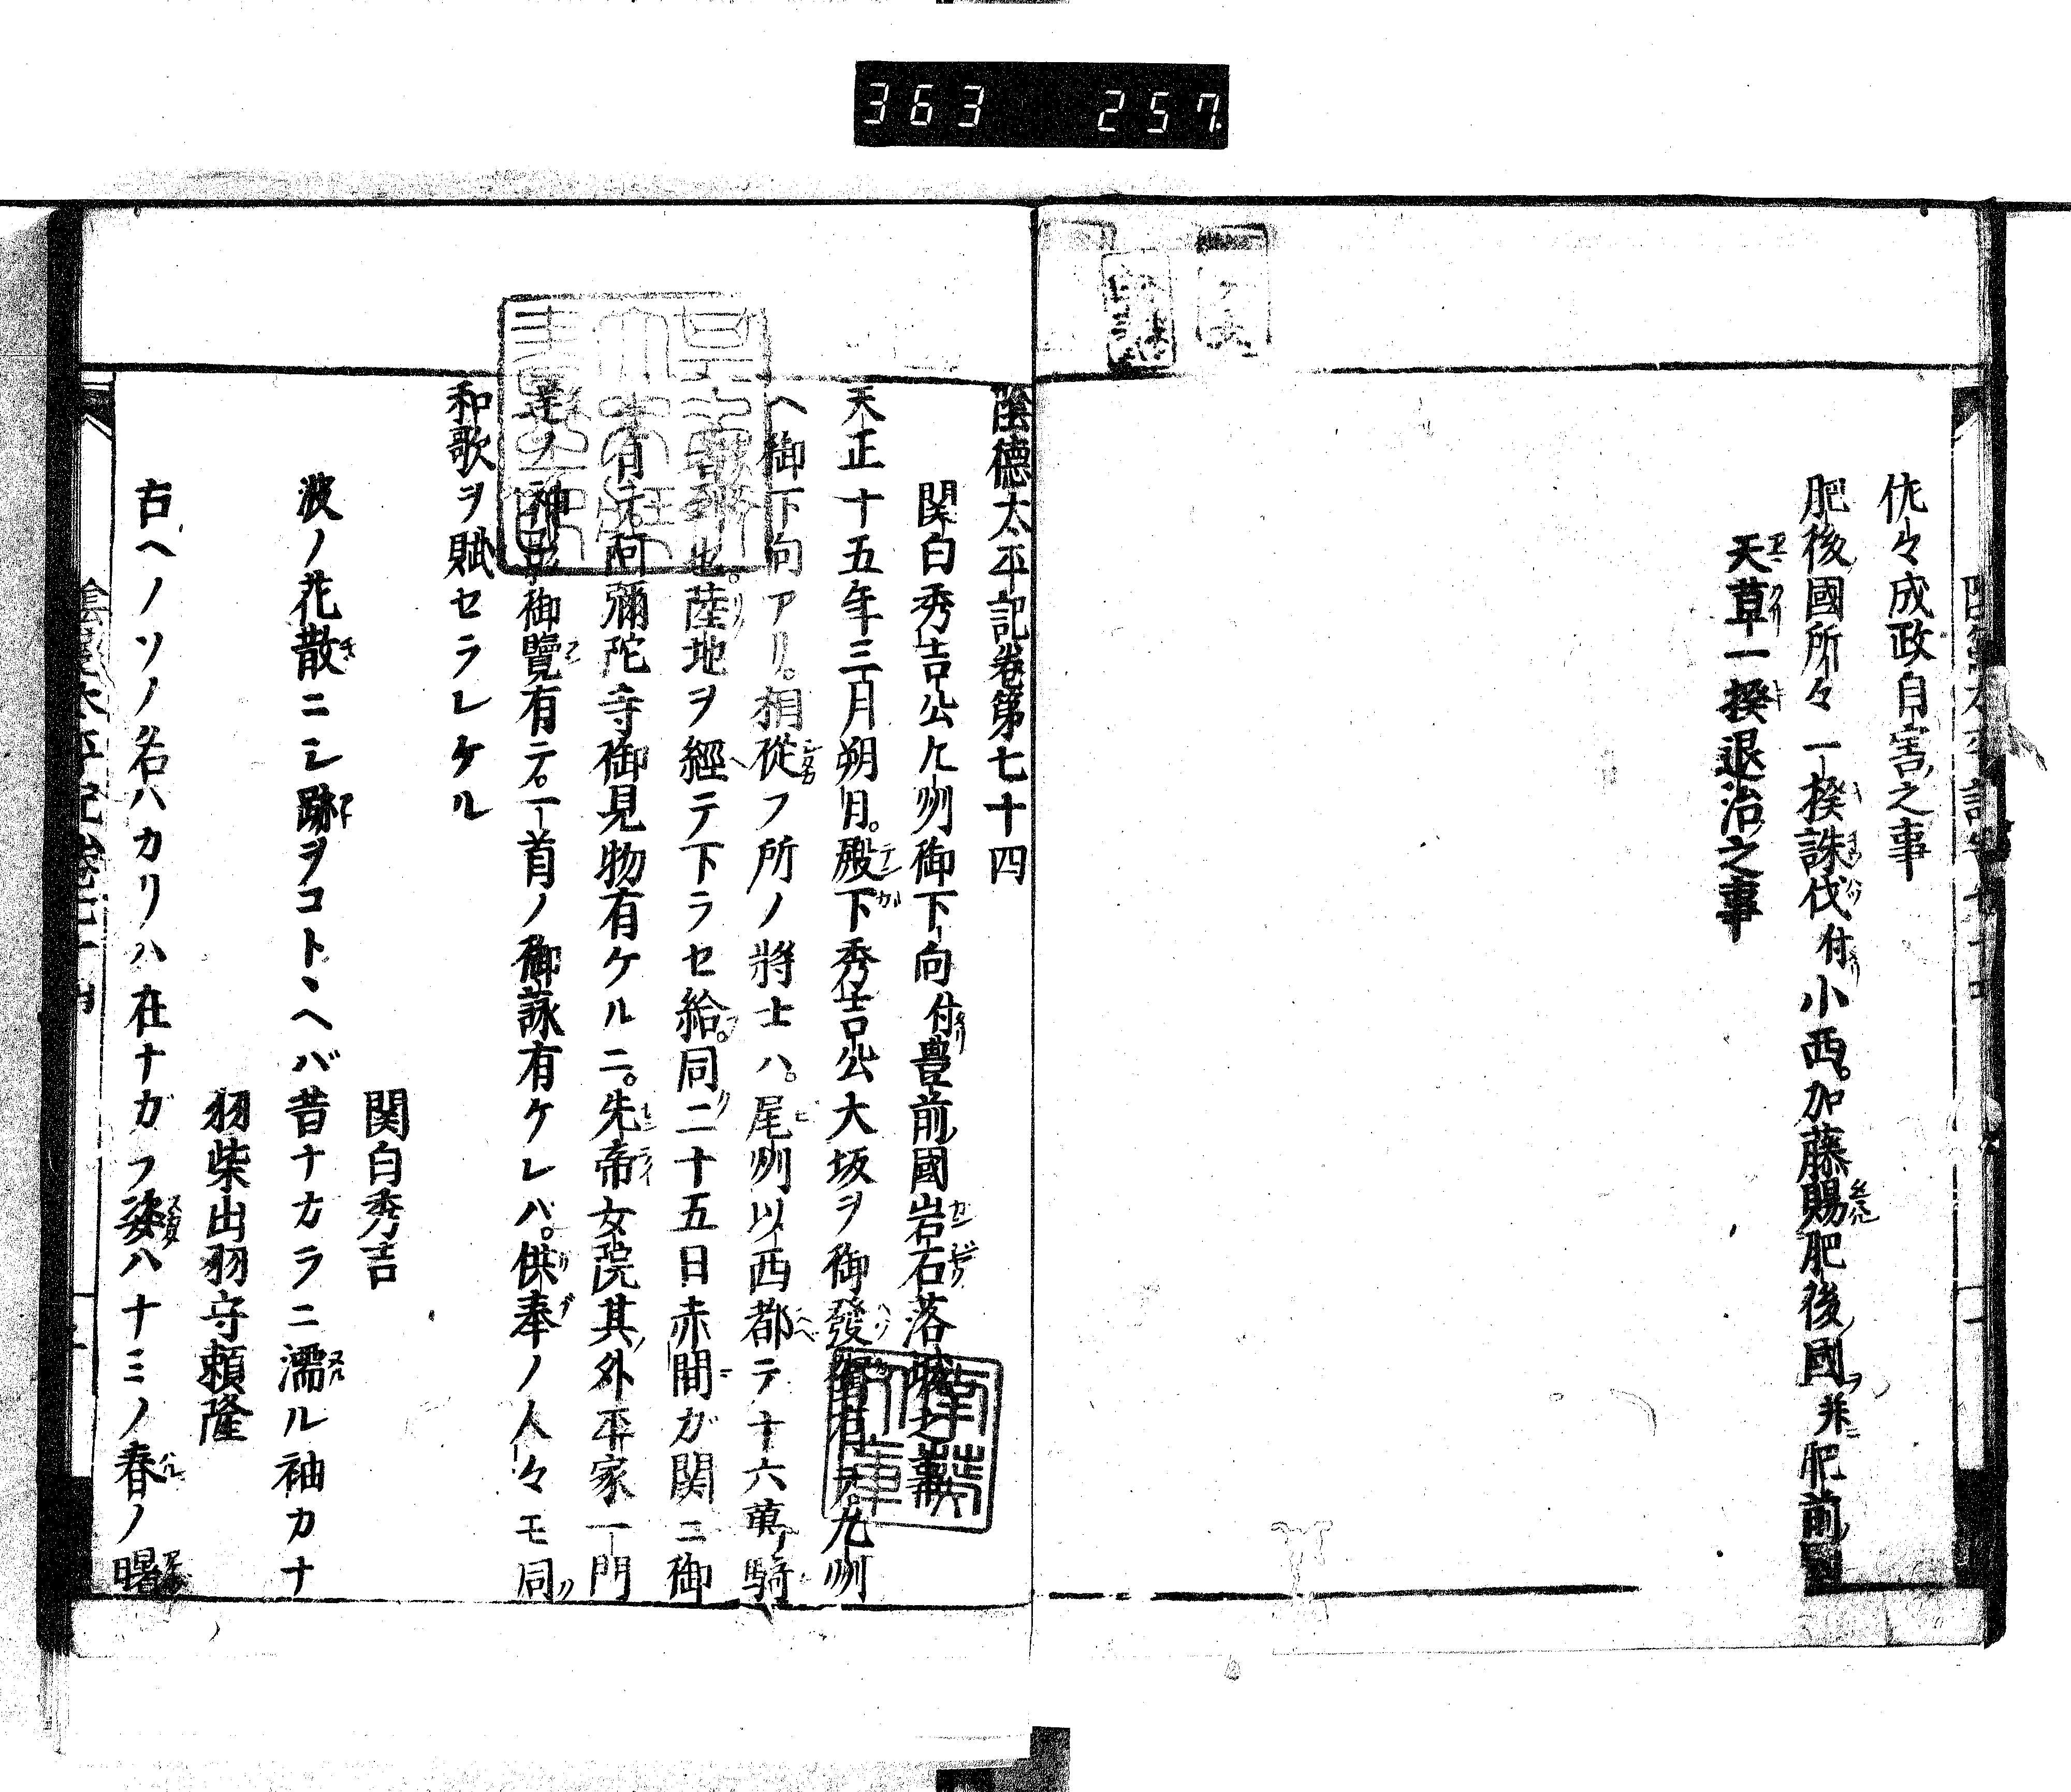 363 257
佐々成政自害之事
肥後國所々一揆誅伐付小西。加藤賜肥後國并肥前
天草一揆退治之事
陰德太平記卷第七十四
関白秀吉公九州御下向付豊前國岩石落城之事
天正十五年三月朔日。殿下秀吉公大坂ヲ御發有テ。九州
ヘ御下向アリ。相從フ所ノ將士ハ。尾州以西都テ十六萬騎
也。陸地ヲ經テ下ラセ給。同二十五日赤間ガ関ニ御
有テ。阿彌陀寺御見物有ケルニ。先帝女院其外平家一門
ノ神影御覽有テ。一首ノ御詠有ケレバ。供奉ノ人々モ同
和歌ヲ賦セラレケル
関白秀吉
波ノ花散ニシ跡ヲコトヽヘバ昔ナカラニ濡ル袖カナ
羽柴出羽守頼隆
古ヘノソノ名ハカリハ在ナガフ姿ハナミノ春ノ曙